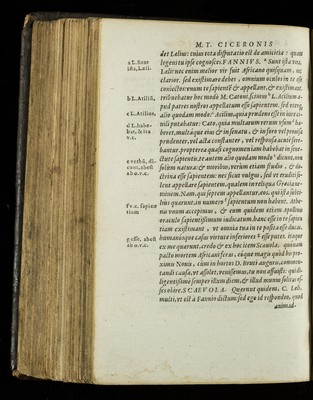 M. T. CICERONIS
det Lælius: cuius tota disputatio est de amicitia: quam
legens tu ipse cognosces. FANNIVS. ª Sunt ista vera,
Læli: nec enim melior vir fuit Africano quisquam, nec
clarior. sed existimare debes, omnium oculos in te esse
coniectos: vnum te sapientē & appellant, & existimant.
tribuebatur hoc modò M. Catoni. scimus b L. Atilium a-
pud patres nostros appellatum esse sapientem. sed vterq;
alio quodam modo: c Atilius, quia prudens esse in iure ci-
uili putabatur: Cato, quia multarum rerum vsum d ha-
beret, multáque eius & in senatu, & in foro vel prouisa
prudenter, vel acta constanter, vel responsa acutè fere-
bantur. propterea quasi cognomen iam habebat in sene-
ctute sapientis. te autem alio quodam modo e dicunt, non
solùm natura & moribus, verùm etiam studio, & do-
ctrina esse sapientem: nec sicut vulgus, sed vt eruditi so-
lent appellare sapientem. qualem in reliqua Græcia ne-
minem. Nam, qui septem appellantur, eos, qui ista subti-
lius quærunt, in numero f sapientum non habent. Athe-
nis vnum accepimus, & eum quidem etiam Apollinis
oraculo sapientissimum iudicatum. hanc esse in te sapien
tiam existimant, vt omnia tua in te posita esse ducas,
humanósque casus virtute inferiores g esse putes. itaque
ex me quærunt, credo & ex hoc item Scæuola. quonam
pacto mortem Africani feras, eóque magis quòd his pro-
ximis Nonis, cùm in hortos D. Bruti auguris, commen-
tandi causa, vt assolet, venissemus, tu non affuisti: qui di-
ligentissimè semper illum diem, & illud munus solitus es-
ses obire. SCAEVOLA. Quærunt quidem, C. Læli
multi, vt est à Fannio dictum: sed ego id respondeo, quod
animad-
a L. Sunt
ista, Læli.
b L. Atiliū,
c L. Atilius,
d L. habe-
bat, & ita
v.c.
e verbū, di-
cunt, abest
ab o. v.c.
f v.c. sapien
tium
g esse, abest
ab o. v.c.